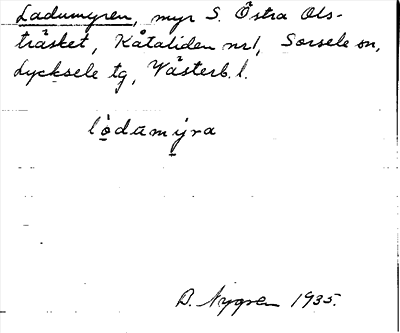 Ladumyren, myr S. Östra Ols-
träsket, Kåtaliden nr1, Sorsele sn,
Lycksele tg, Västerb. l.
lo̱damy̱ra
D. Nygren 1935.